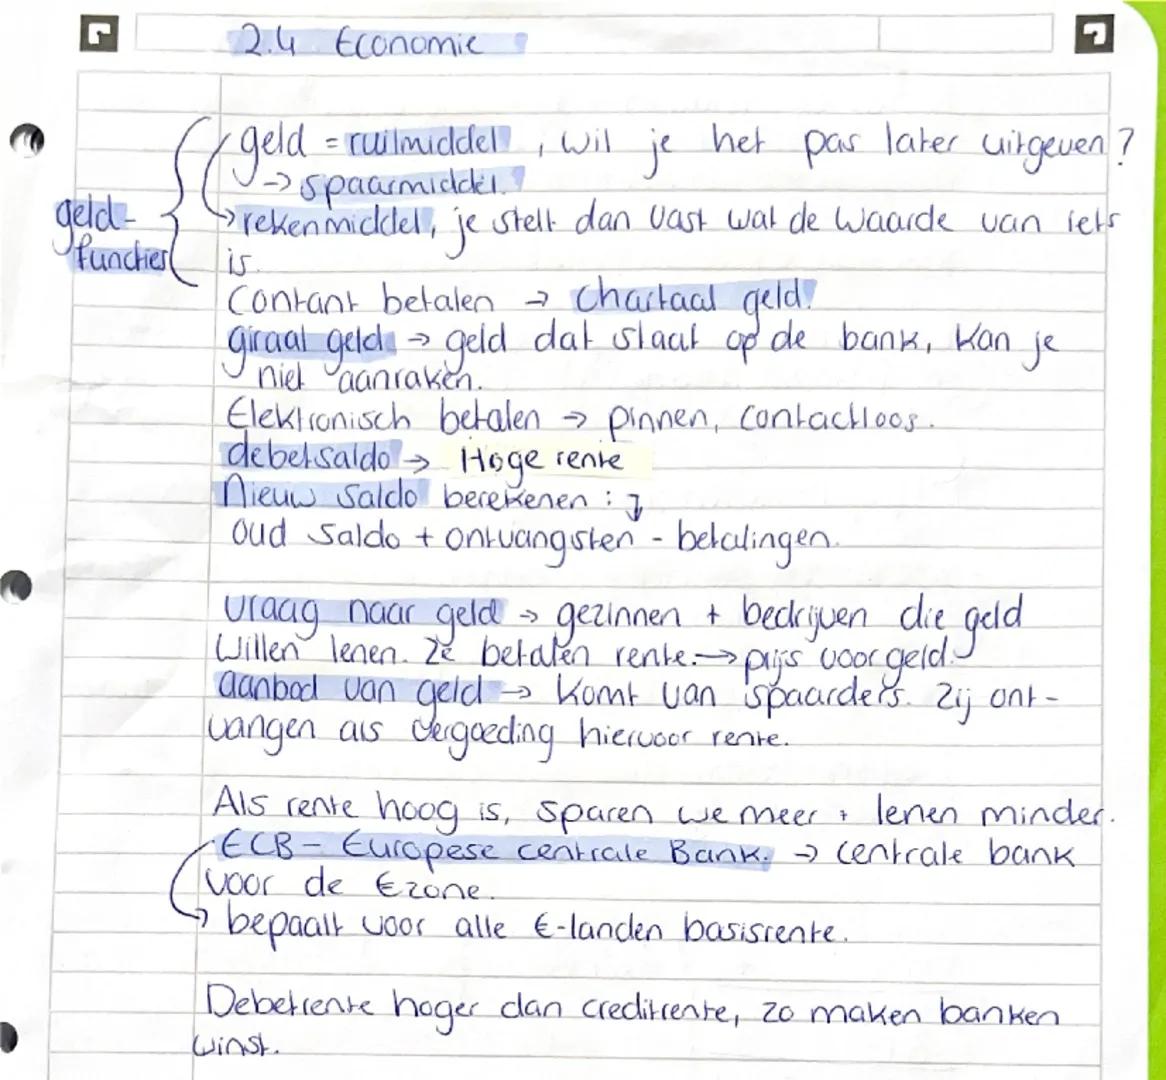 2.4 Economie
geld = ruilmiddel, wil je het pas later uitgeven?
→ spaarmiddel.
geld-
functies
→ rekenmiddel, je stelt dan vast wat de waarde van iets
is.
Contant betalen → Chartaal geld.
giraal geld → geld dat staat op de bank, kan je
niet aanraken.
Elektronisch betalen → pinnen, contactloos.
debetsaldo → Hoge rente
Nieuw saldo berekenen: ↓
Oud saldo + ontvangsten - betalingen.
Vraag naar geld → gezinnen + bedrijven die geld
willen lenen. Ze betalen rente. → prijs voor geld.
aanbod van geld → komt van spaarders. Zij ont-
vangen als vergoeding hiervoor rente.
Als rente hoog is, sparen we meer + lenen minder.
ECB - Europese centrale Bank. → centrale bank
voor de €zone.
→ bepaalt voor alle €-landen basisrente.
Debetrente hoger dan creditrente, zo maken banken
winst.